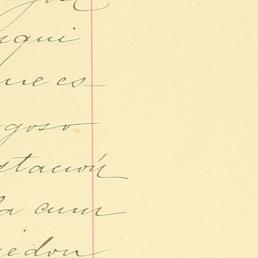 squi
ue es-
goso
stación
la cum
iedon